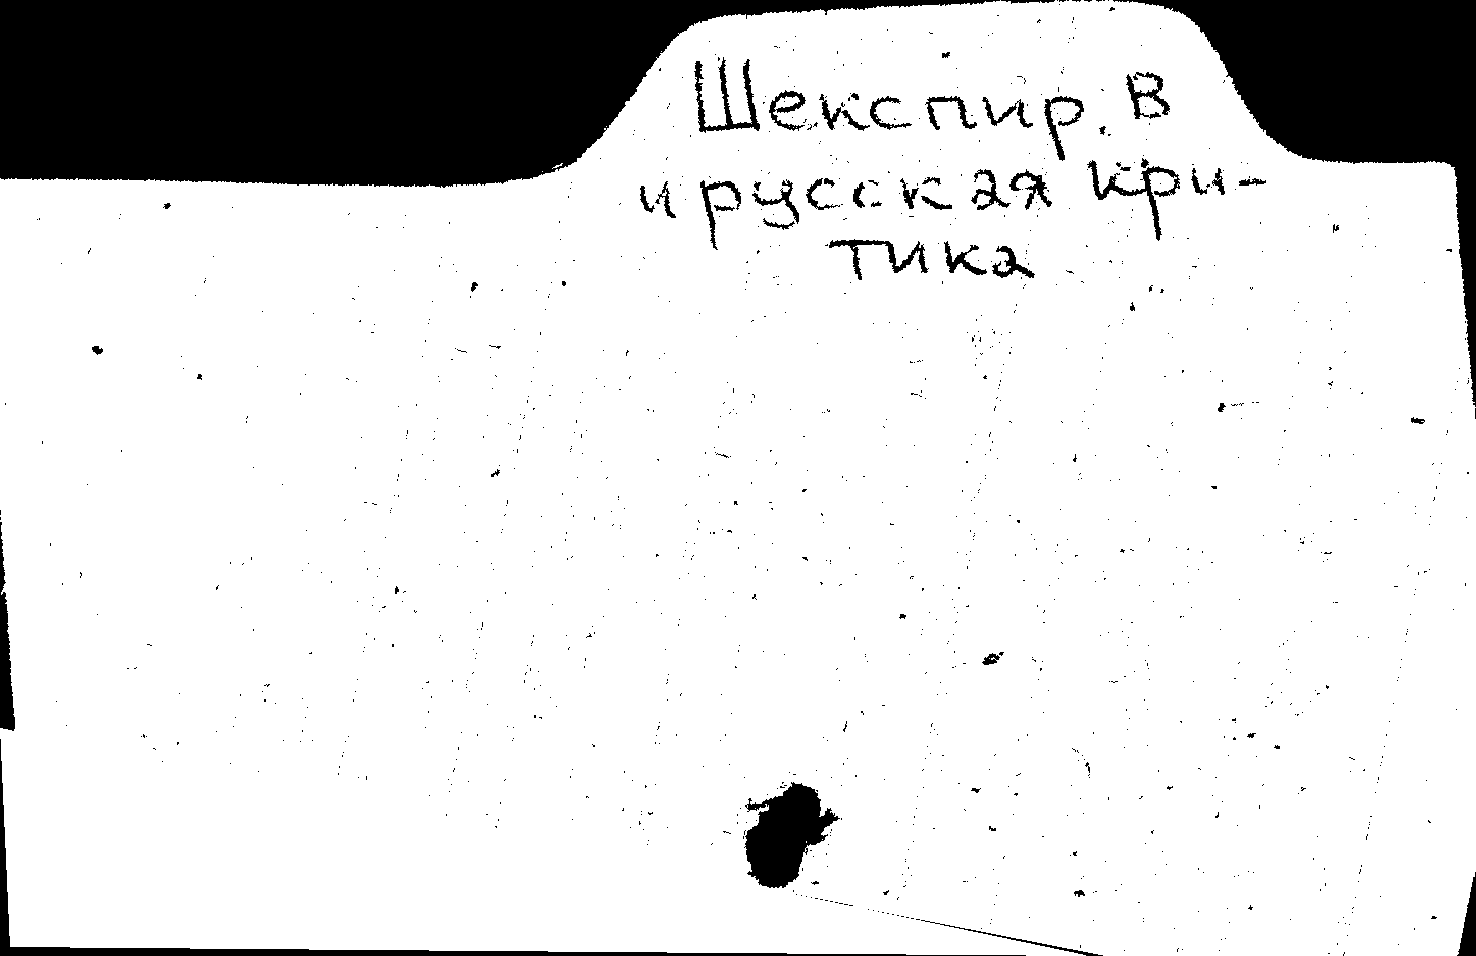 Шекспир. В
и русская кри-
тика